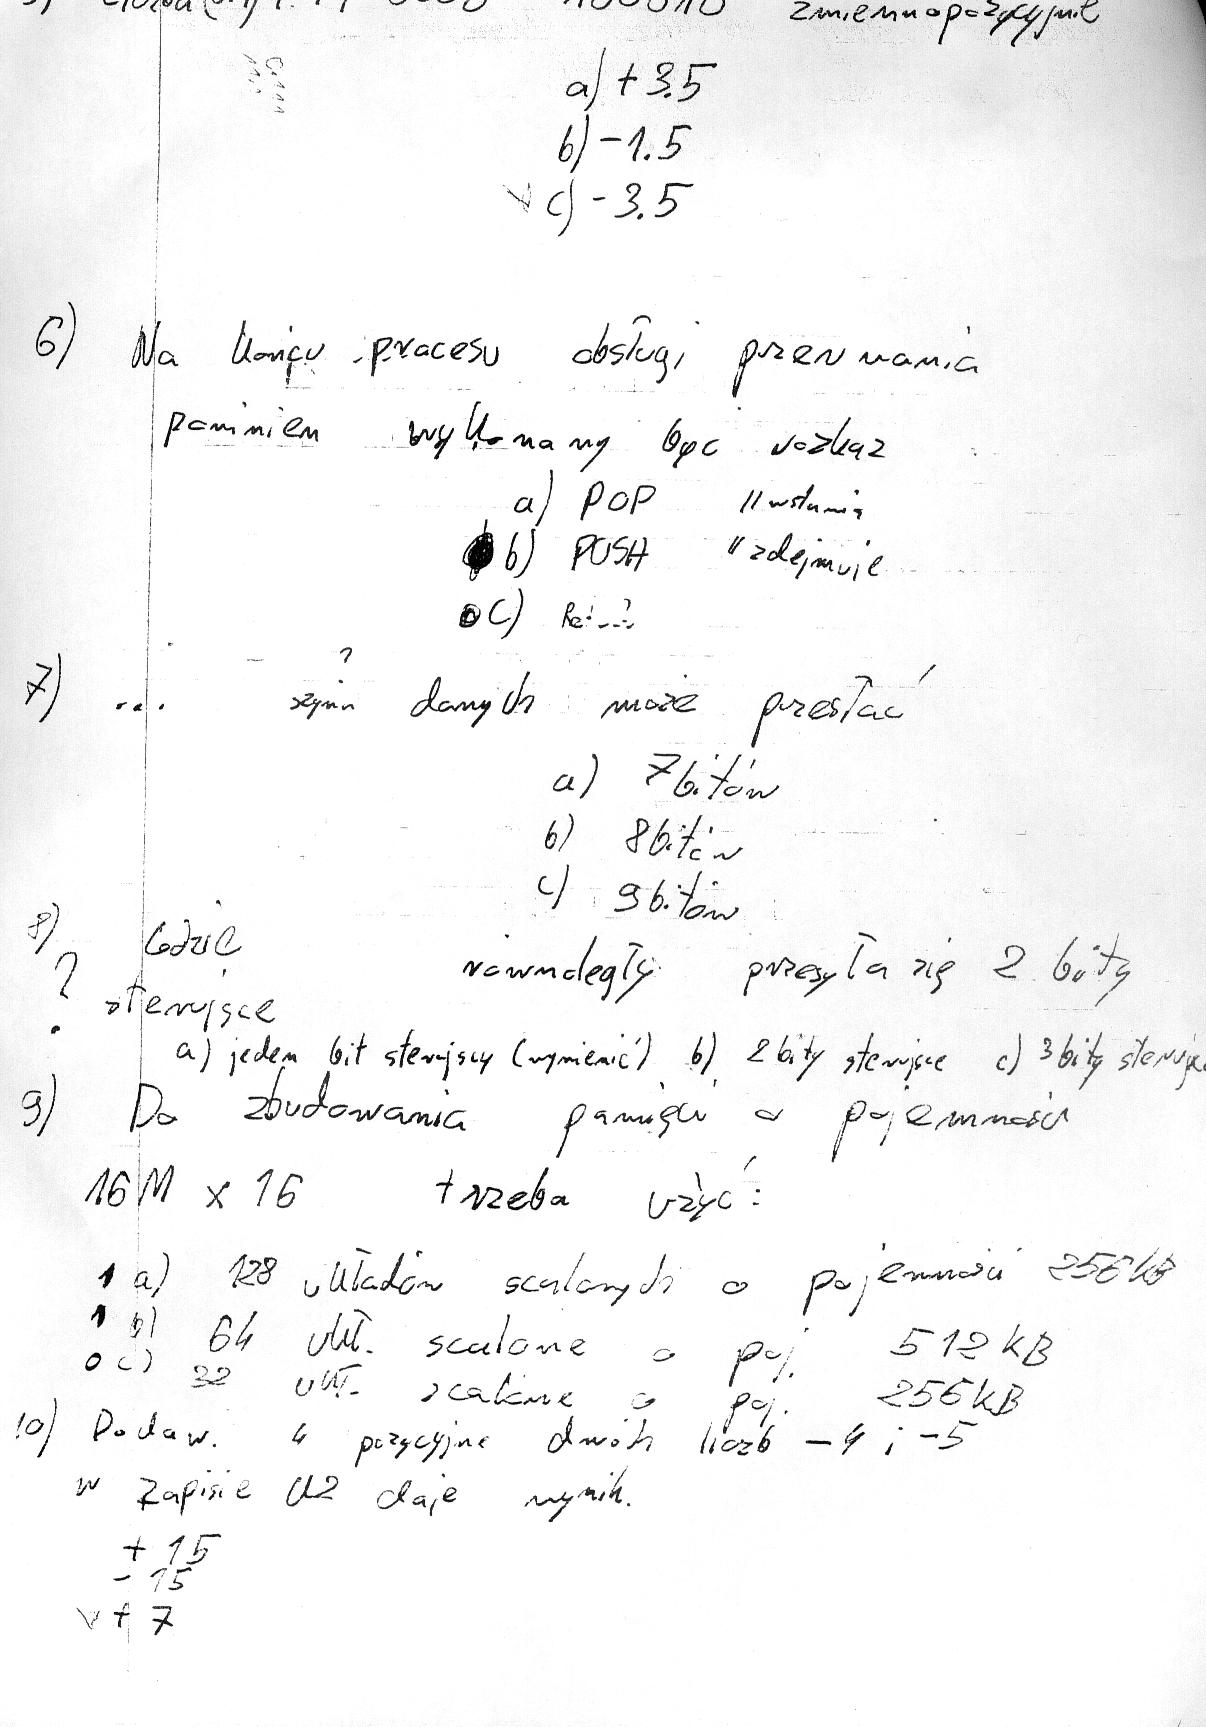 zmiennopozycyjnie
a) + 3.5
b) - 1.5
v c) - 3.5
6) Na końcu procesu obsługi przerwania
powinien wykonany być rozkaz
a) POP
b) PUSH " zdejmuje
c)
7) ... ? szyna danych może przesłać
a) 7 bitów
b) 8 bitów
c) 9 bitów
8) Gdzie równoległy przesyła się 2 bity
? sterujące
a) jeden bit sterujący (wymienić) b) 2 bity sterujące c) 3 bity sterujące
9) Do zbudowania pamięci o pojemności
16M x 16 trzeba użyć:
1 a) 128 układów scalonych o pojemności 256 kB
1 b) 64 ukł. scalone o poj. 512 kB
0 c) 32 ukł. scalone o poj. 256 kB
10) Dodaw. 4 pozycyjne dwóch liczb -4 i -5
w zapisie U2 daje wynik.
+ 15
- 15
v + 7